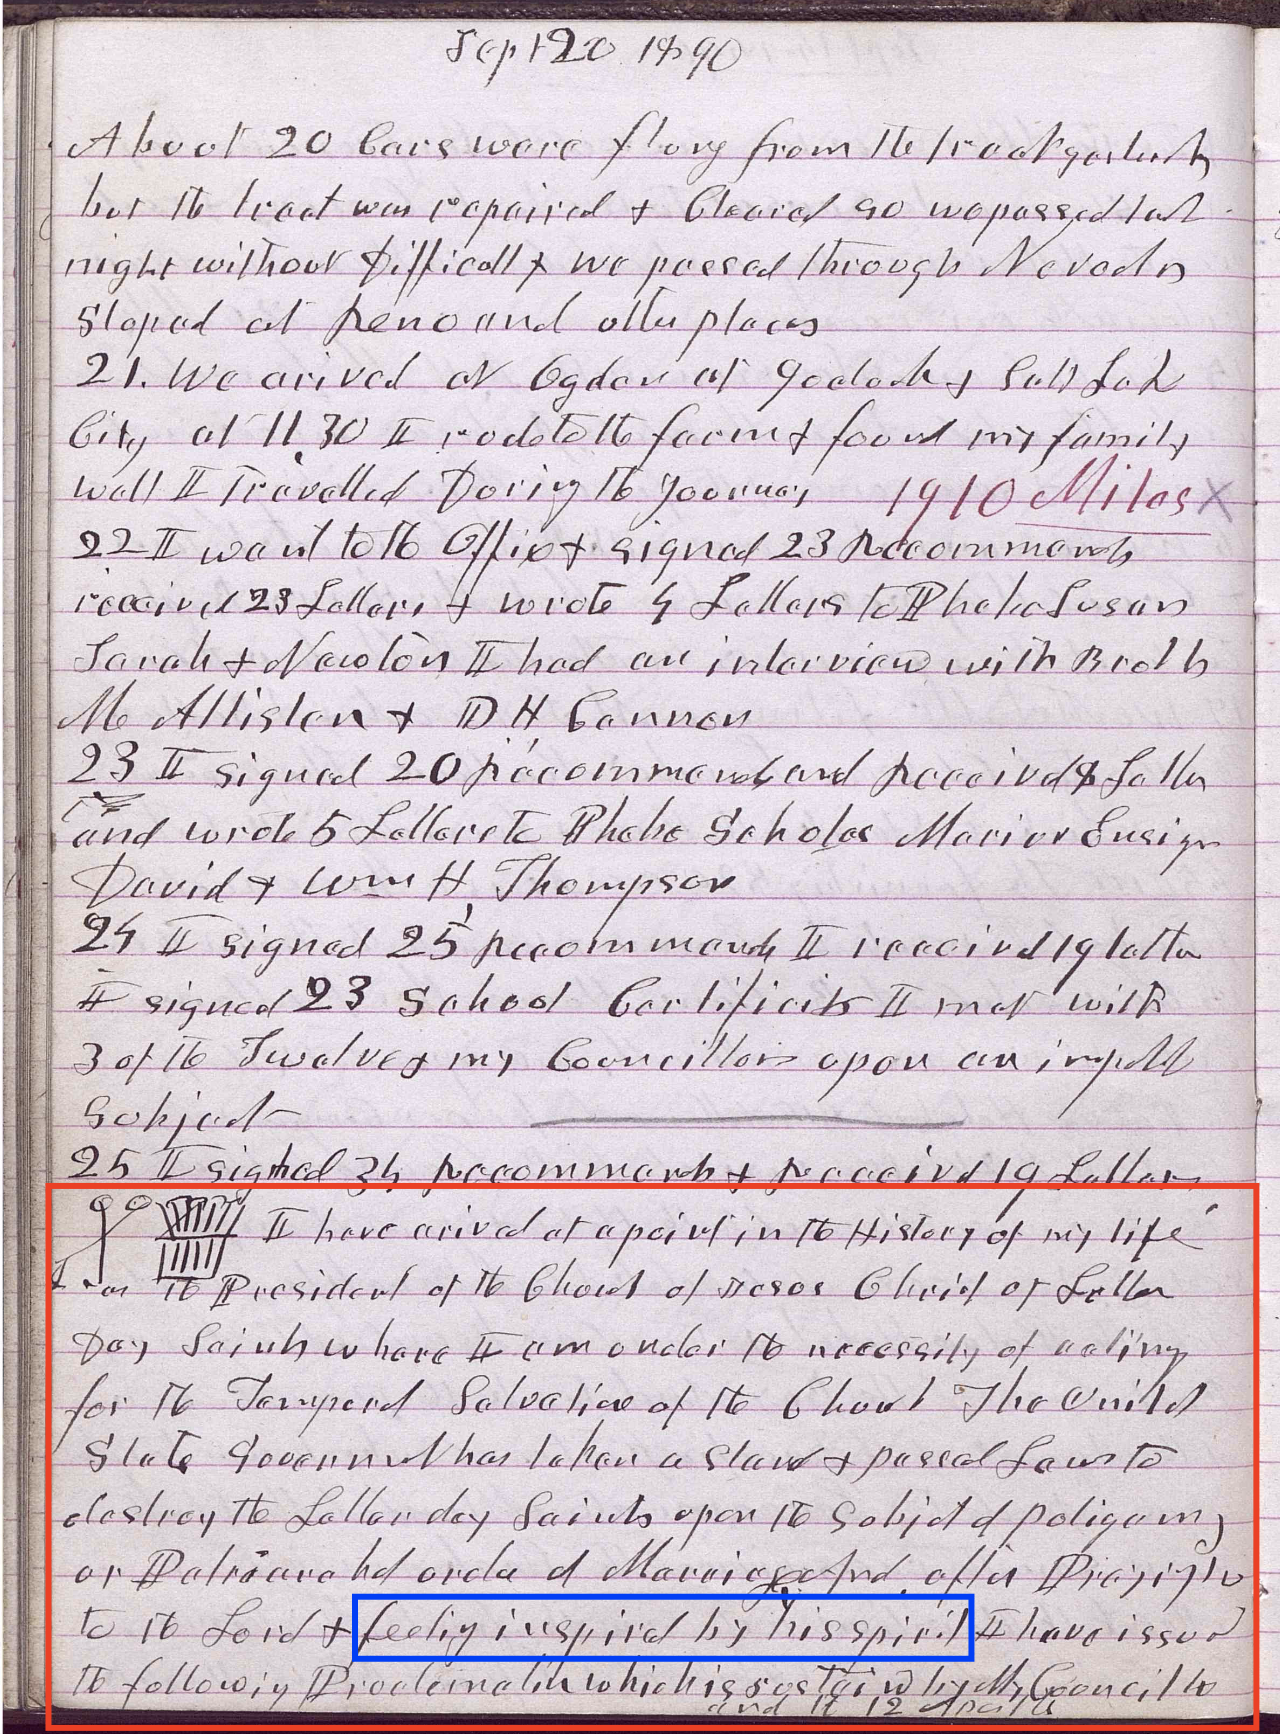 Sept 20 1890
About 20 Cars were flong from the track yesterdy
but the tract was repaired & Cleared so we passed last
night without Difficulty we passed through Nevada
Stoped at Reno and other places
21. We arived at Ogden at 9 oclock & Salt Lake
City at 11.30 I rode to the farm & found my family
well I Travelled During the Joourney 1910 Miles X
22 I went to the Office & signed 23 Recommends
received 23 Letters & wrote 4 Letters to Phebe Susan
Sarah & Newton I had an interview with Broth
Mc Allister & D H Cannon
23 I signed 20 Recommends and Received 8 Letter
and wrote 5 Letters to Phebe Scholes Marion Ensign
David & Wm H, Thompson
24 I signed 25 Recommends I received 19 letter
I signed 23 School Certificats I met with
3 of the Twelve & my Councillors upon an impt
Subject
25 I signed 34 Recommends & Received 19 Letters
I have arived at a point in the History of my life
as the President of the Church of Jesus Christ of Latter
Day Saints where I am under the necessity of acting
for the Temporal Salvation of the Church The United
State Governmet has taken a stand & passed Laws to
destroy the Latter day Saints upon the Subjet of poligamy
or Patriarchal order of Marriage And after Praying
to the Lord & feeling inspired by his spirit I have issued
the following Proclamation which is sustained by My Councillors
and the 12 Apostles